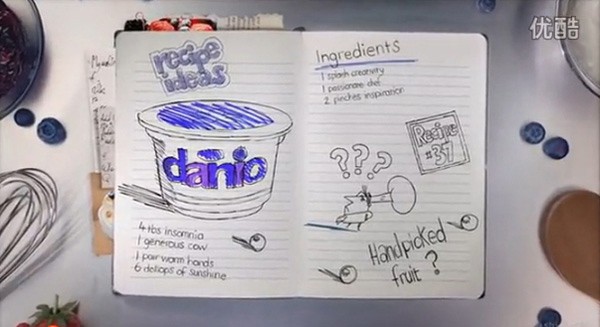 优酷
recipe
ideas
danio
4 tbs insomnia
1 generous cow
1 pair warm hands
6 dollops of sunshine
Ingredients
1 splash creativity
1 passionate chef
2 pinches inspiration
Recipe
#37
???
Handpicked
fruit ?